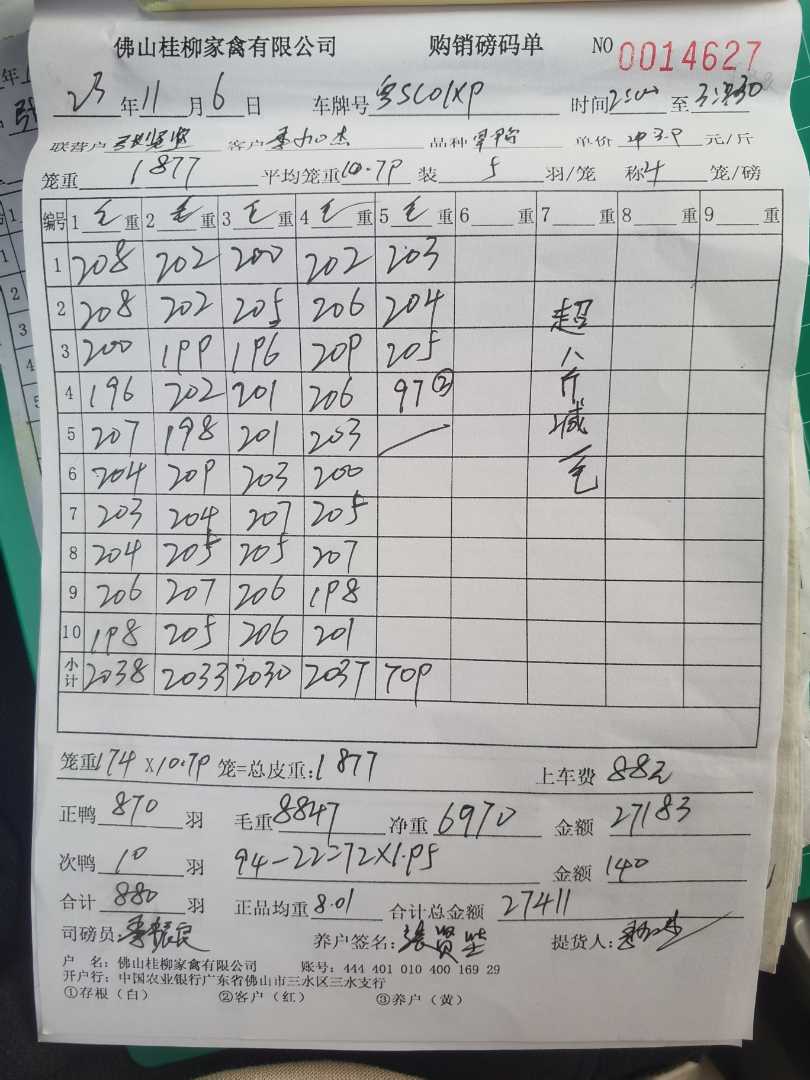 佛山桂柳家禽有限公司 购销磅码单 NO 0014627
23 年 11 月 6 日 车牌号 粤SC01XP 时间 至
联营户 张贤坚 客户 品种 单价 3.9 元/斤
笼重 1877 平均笼重 10.79 装 5 羽/笼 称 4 笼/磅
编号 1 毛 重 2 毛 重 3 毛 重 4 毛 重 5 毛 重 6 重 7 重 8 重 9 重
1 208 202 200 202 203
2 208 202 205 206 204
3 200 199 196 209 205
4 196 202 201 206 97②
5 207 198 201 203
6 204 209 203 200
7 203 204 207 205
8 204 205 205 207
9 206 207 206 198
10 198 205 206 201
小计 2038 2033 2030 2037 709
超八斤减一毛
笼重 174 X 10.79 笼=总皮重:1877 上车费 88元
正鸭 870 羽 毛重 8847 净重 6970 金额 27183
次鸭 10 羽 94-22=72X1.95 金额 140
合计 880 羽 正品均重 8.01 合计总金额 27411
司磅员: 李振良 养户签名: 张贤坚 提货人:
户 名: 佛山桂柳家禽有限公司 账号: 444 401 010 400 169 29
开户行: 中国农业银行广东省佛山市三水区三水支行
①存根（白） ②客户（红） ③养户（黄）